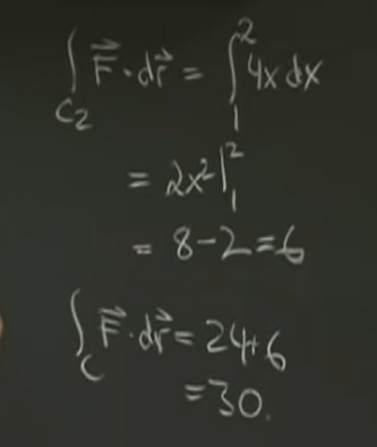 ∫_{C₂} F⃗·dr⃗ = ∫₁² 4x dx
= 2x²|₁²
= 8-2=6
∫_C F⃗·dr⃗ = 24+6
=30.